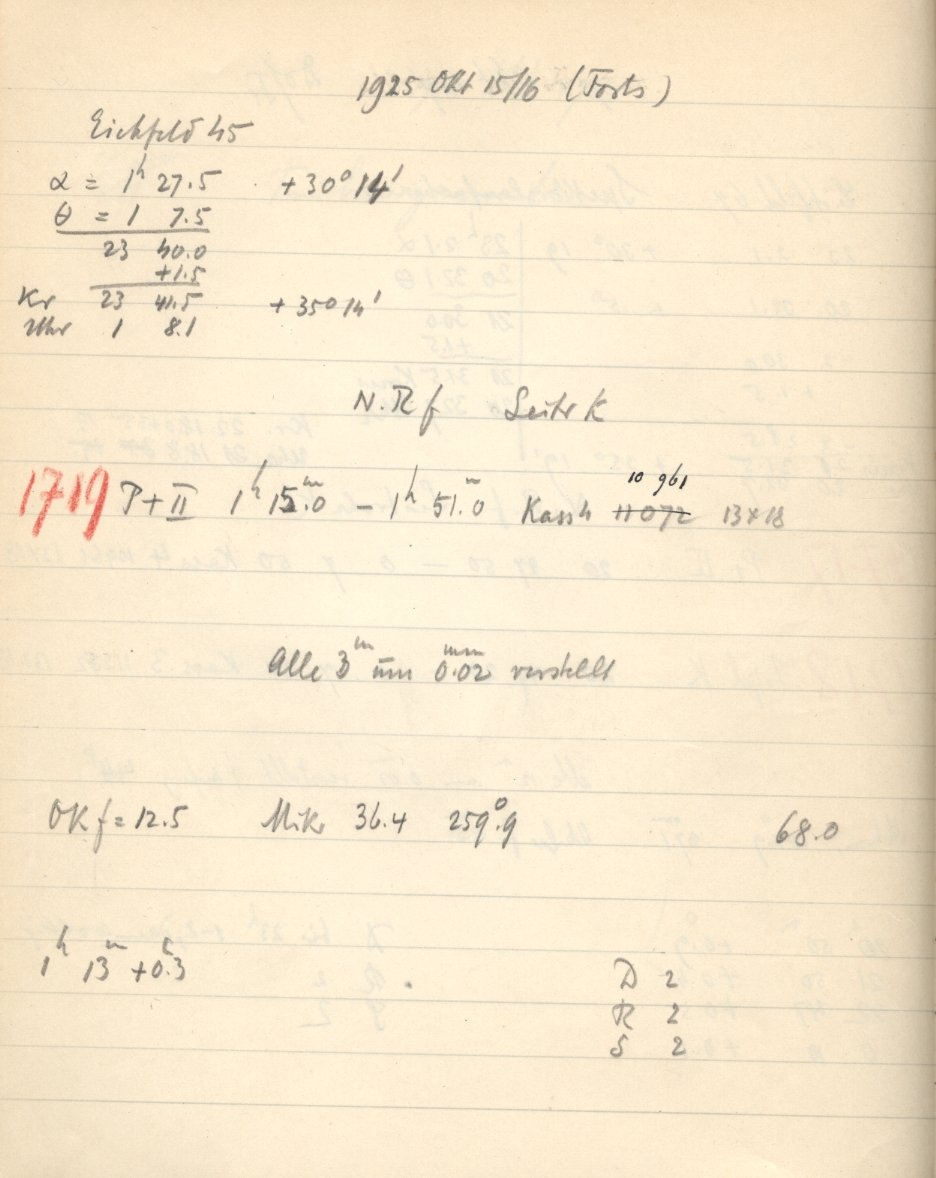 1925 Okt 15/16 (Forts)
Eichfeld 45
α = 1h 27.5 +30° 14'
θ = 1 7.5
23 40.0
+1.5
Kr 23 41.5 +35° 14'
Uhr 1 8.1
N. R f K
10 961
1719 P + II 1h 15m.0 – 1h 51m.0 Kass 4 11072 13x18
Alle 3m um 0.02mm verstellt
OK f = 12.5 Mikr 36.4 259°.9 68.0
1h 13m +0.3
D 2
R 2
S 2